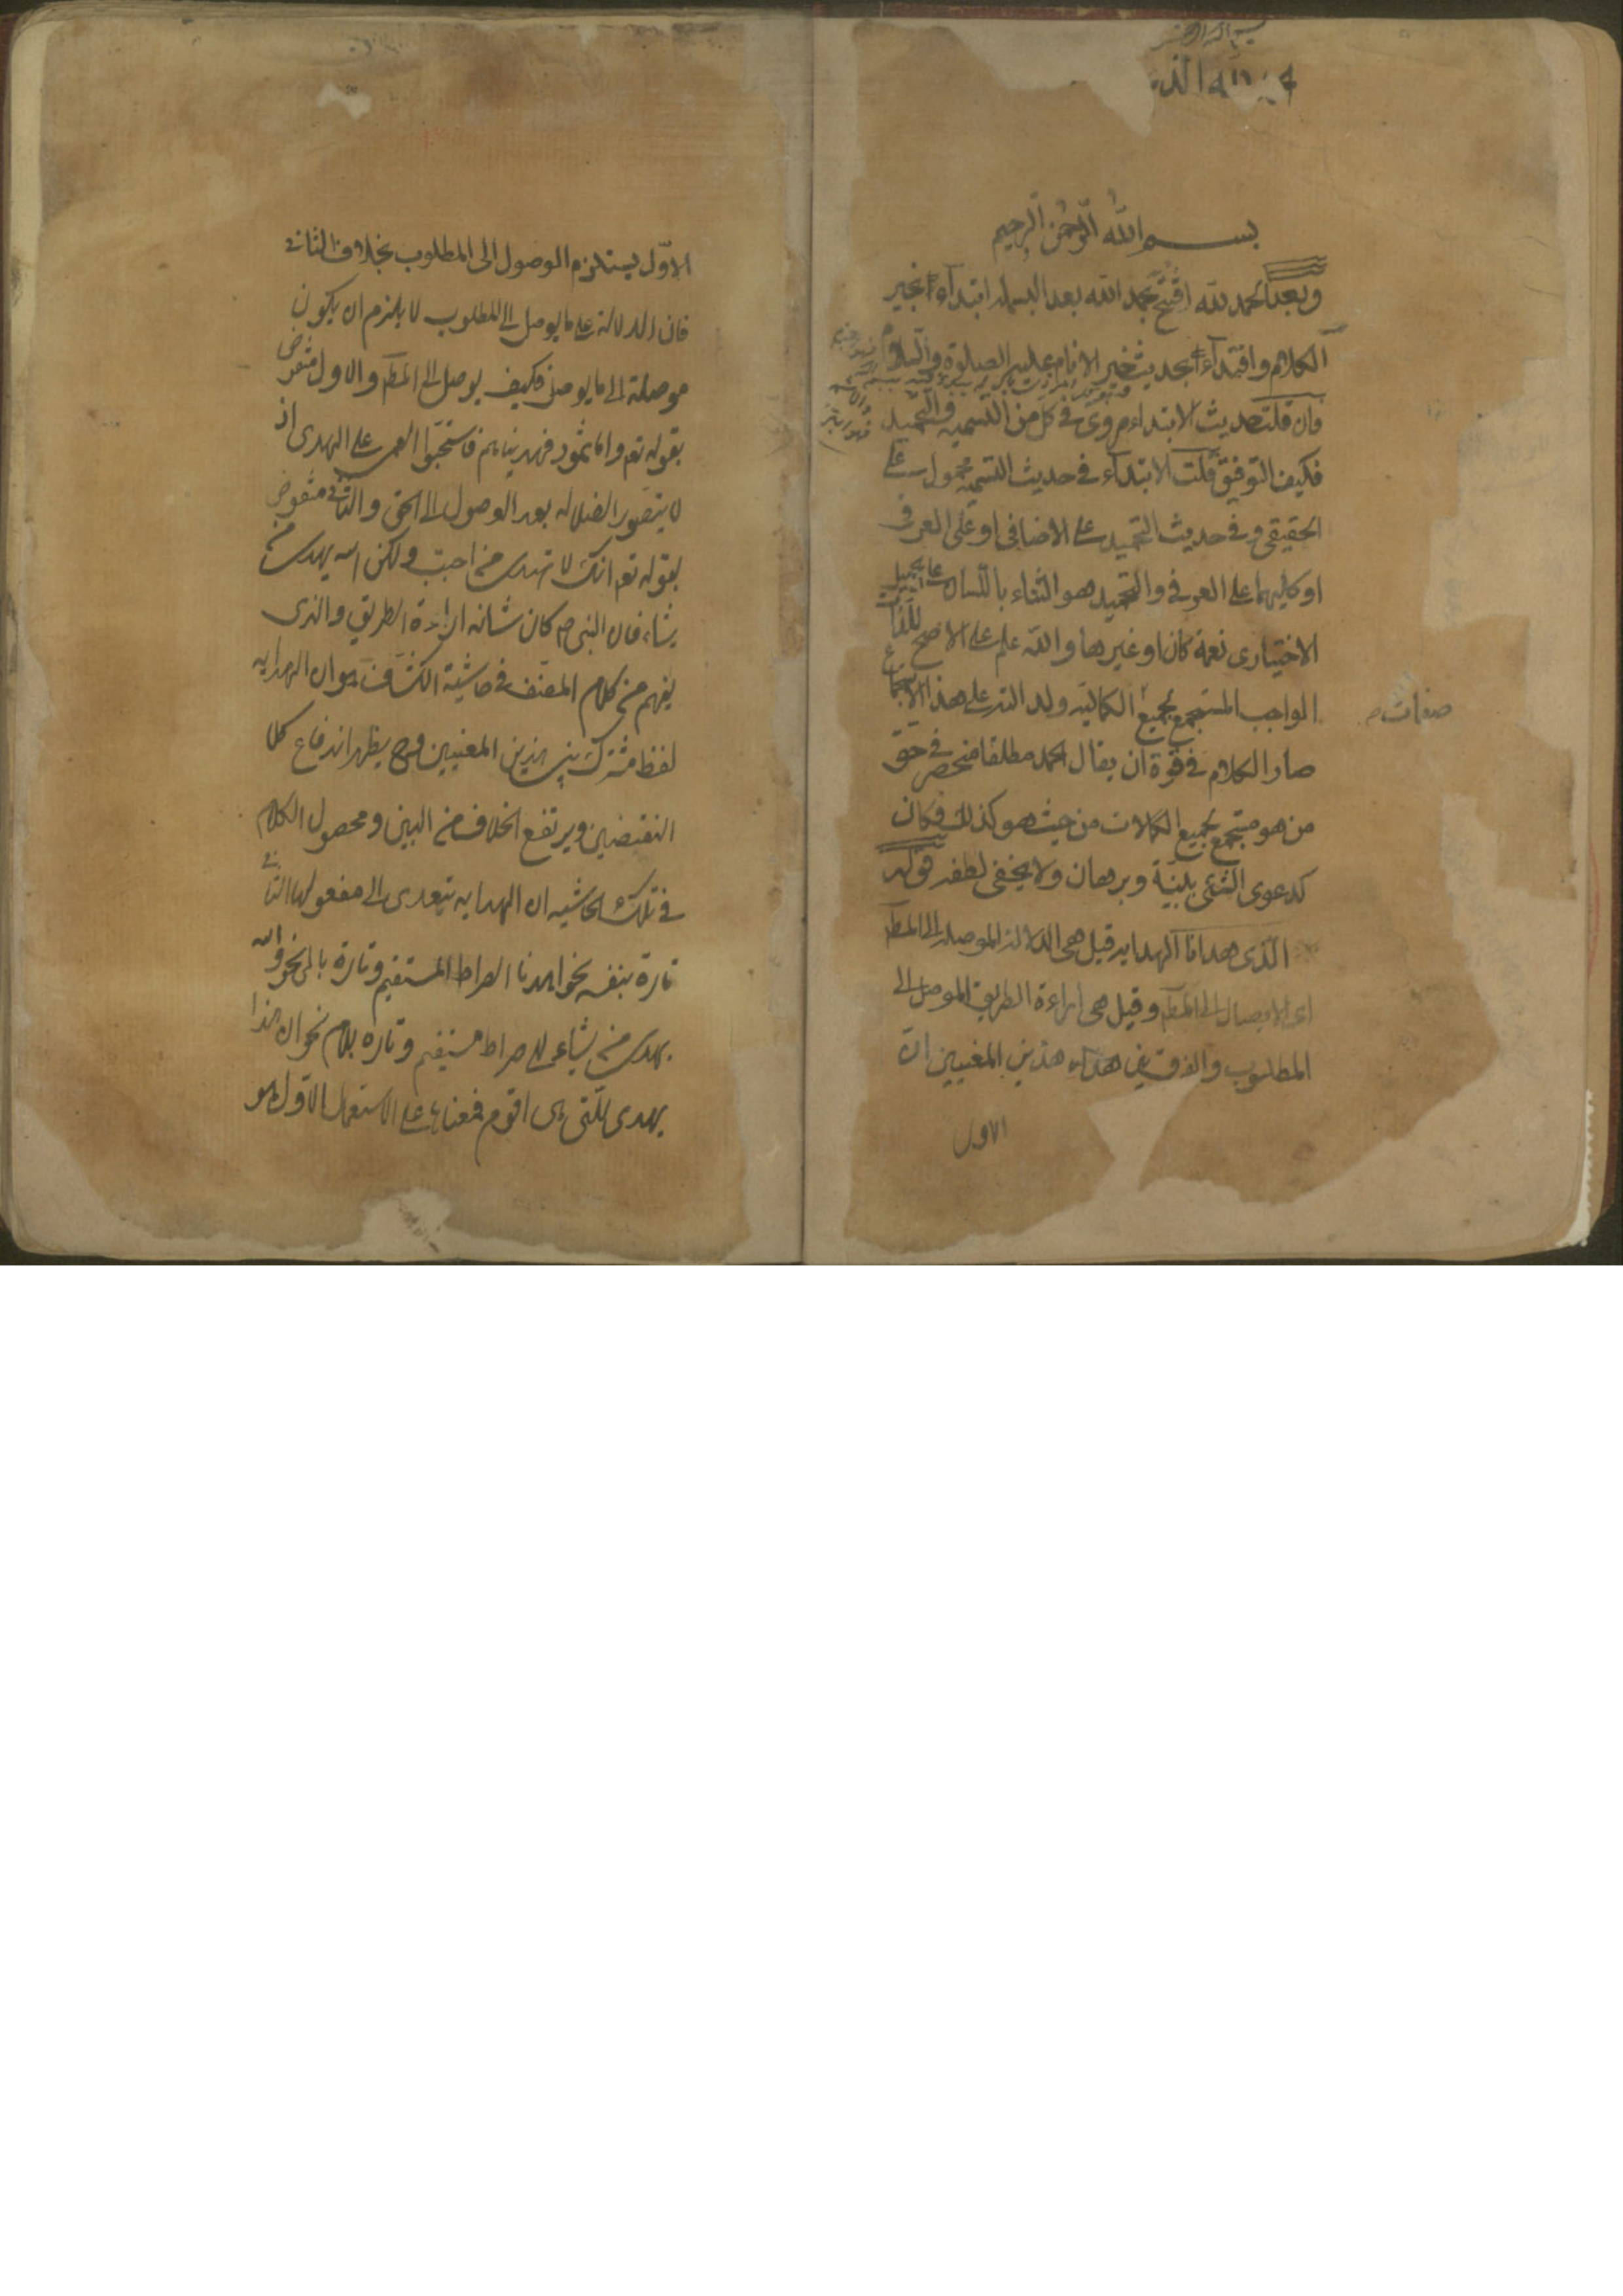 بسم الله الرحمن الرحيم
وبعد الحمد لله افتتح بحمد الله بعد البسملة ابتداء بخير
الكلام واقتداء بحديث خير الانام عليه الصلوة والسلام
فان قلت حديث الابتداء مروى فى كل من التسمية والتحميد
فكيف التوفيق قلت الابتداء فى حديث التسمية محمول على
الحقيقى و فى حديث التحميد على الاضافى او على العرفى
او كليهما على العرفى والتحميد هو الثناء باللسان على الجميل
الاختيارى نعمة كان او غيرها والله علم على الاصح للذات
الواجب المستجمع لجميع الكمالية ولدلالته على هذا الاستجماع
صفات
صار الكلام فى قوة ان يقال الحمد مطلقا منحصر فى حق
من هو مستجمع لجميع الكمالات من حيث هو كذلك فكان
كدعوى الشئ ببينة وبرهان ولا يخفى لطفه قوله
الذى هدانا الهداية قيل هى الدلالة الموصلة الى المط
اى الايصال الى المط وقيل هى اراءة الطريق الموصل الى
المطلوب والفرق بين هذين المعنيين ان
الاول
الاول يستلزم الوصول الى المطلوب بخلاف الثانى
فان الدلالة على ما يوصل الى المطلوب لا يلزم ان يكون
موصلة الى ما يوصل فكيف يوصل الى المط والاول منقوض
بقوله تع واما ثمود فهديناهم فاستحبوا العمى على الهدى اذ
لا يتصور الضلالة بعد الوصول الى الحق والثانى منقوض
بقوله تع انك لا تهدى من احببت ولكن الله يهدى من
يشاء فان النبى ص كان شانه اراءة الطريق والذى
يفهم من كلام المصنف فى حاشية الكشاف هو ان الهداية
لفظ مشترك بين هذين المعنيين وح يظهر اندفاع كلا
النقضين ويرتفع الخلاف من البين ومحصول الكلام
فى تلك الحاشية ان الهداية يتعدى الى مفعولها الثانى
تارة بنفسه نحو اهدنا الصراط المستقيم وتارة بالى نحو والله
يهدى من يشاء الى صراط مستقيم وتارة بلام نحو ان هذا
يهدى للتى هى اقوم فمعناها على الاستعمال الاول هو